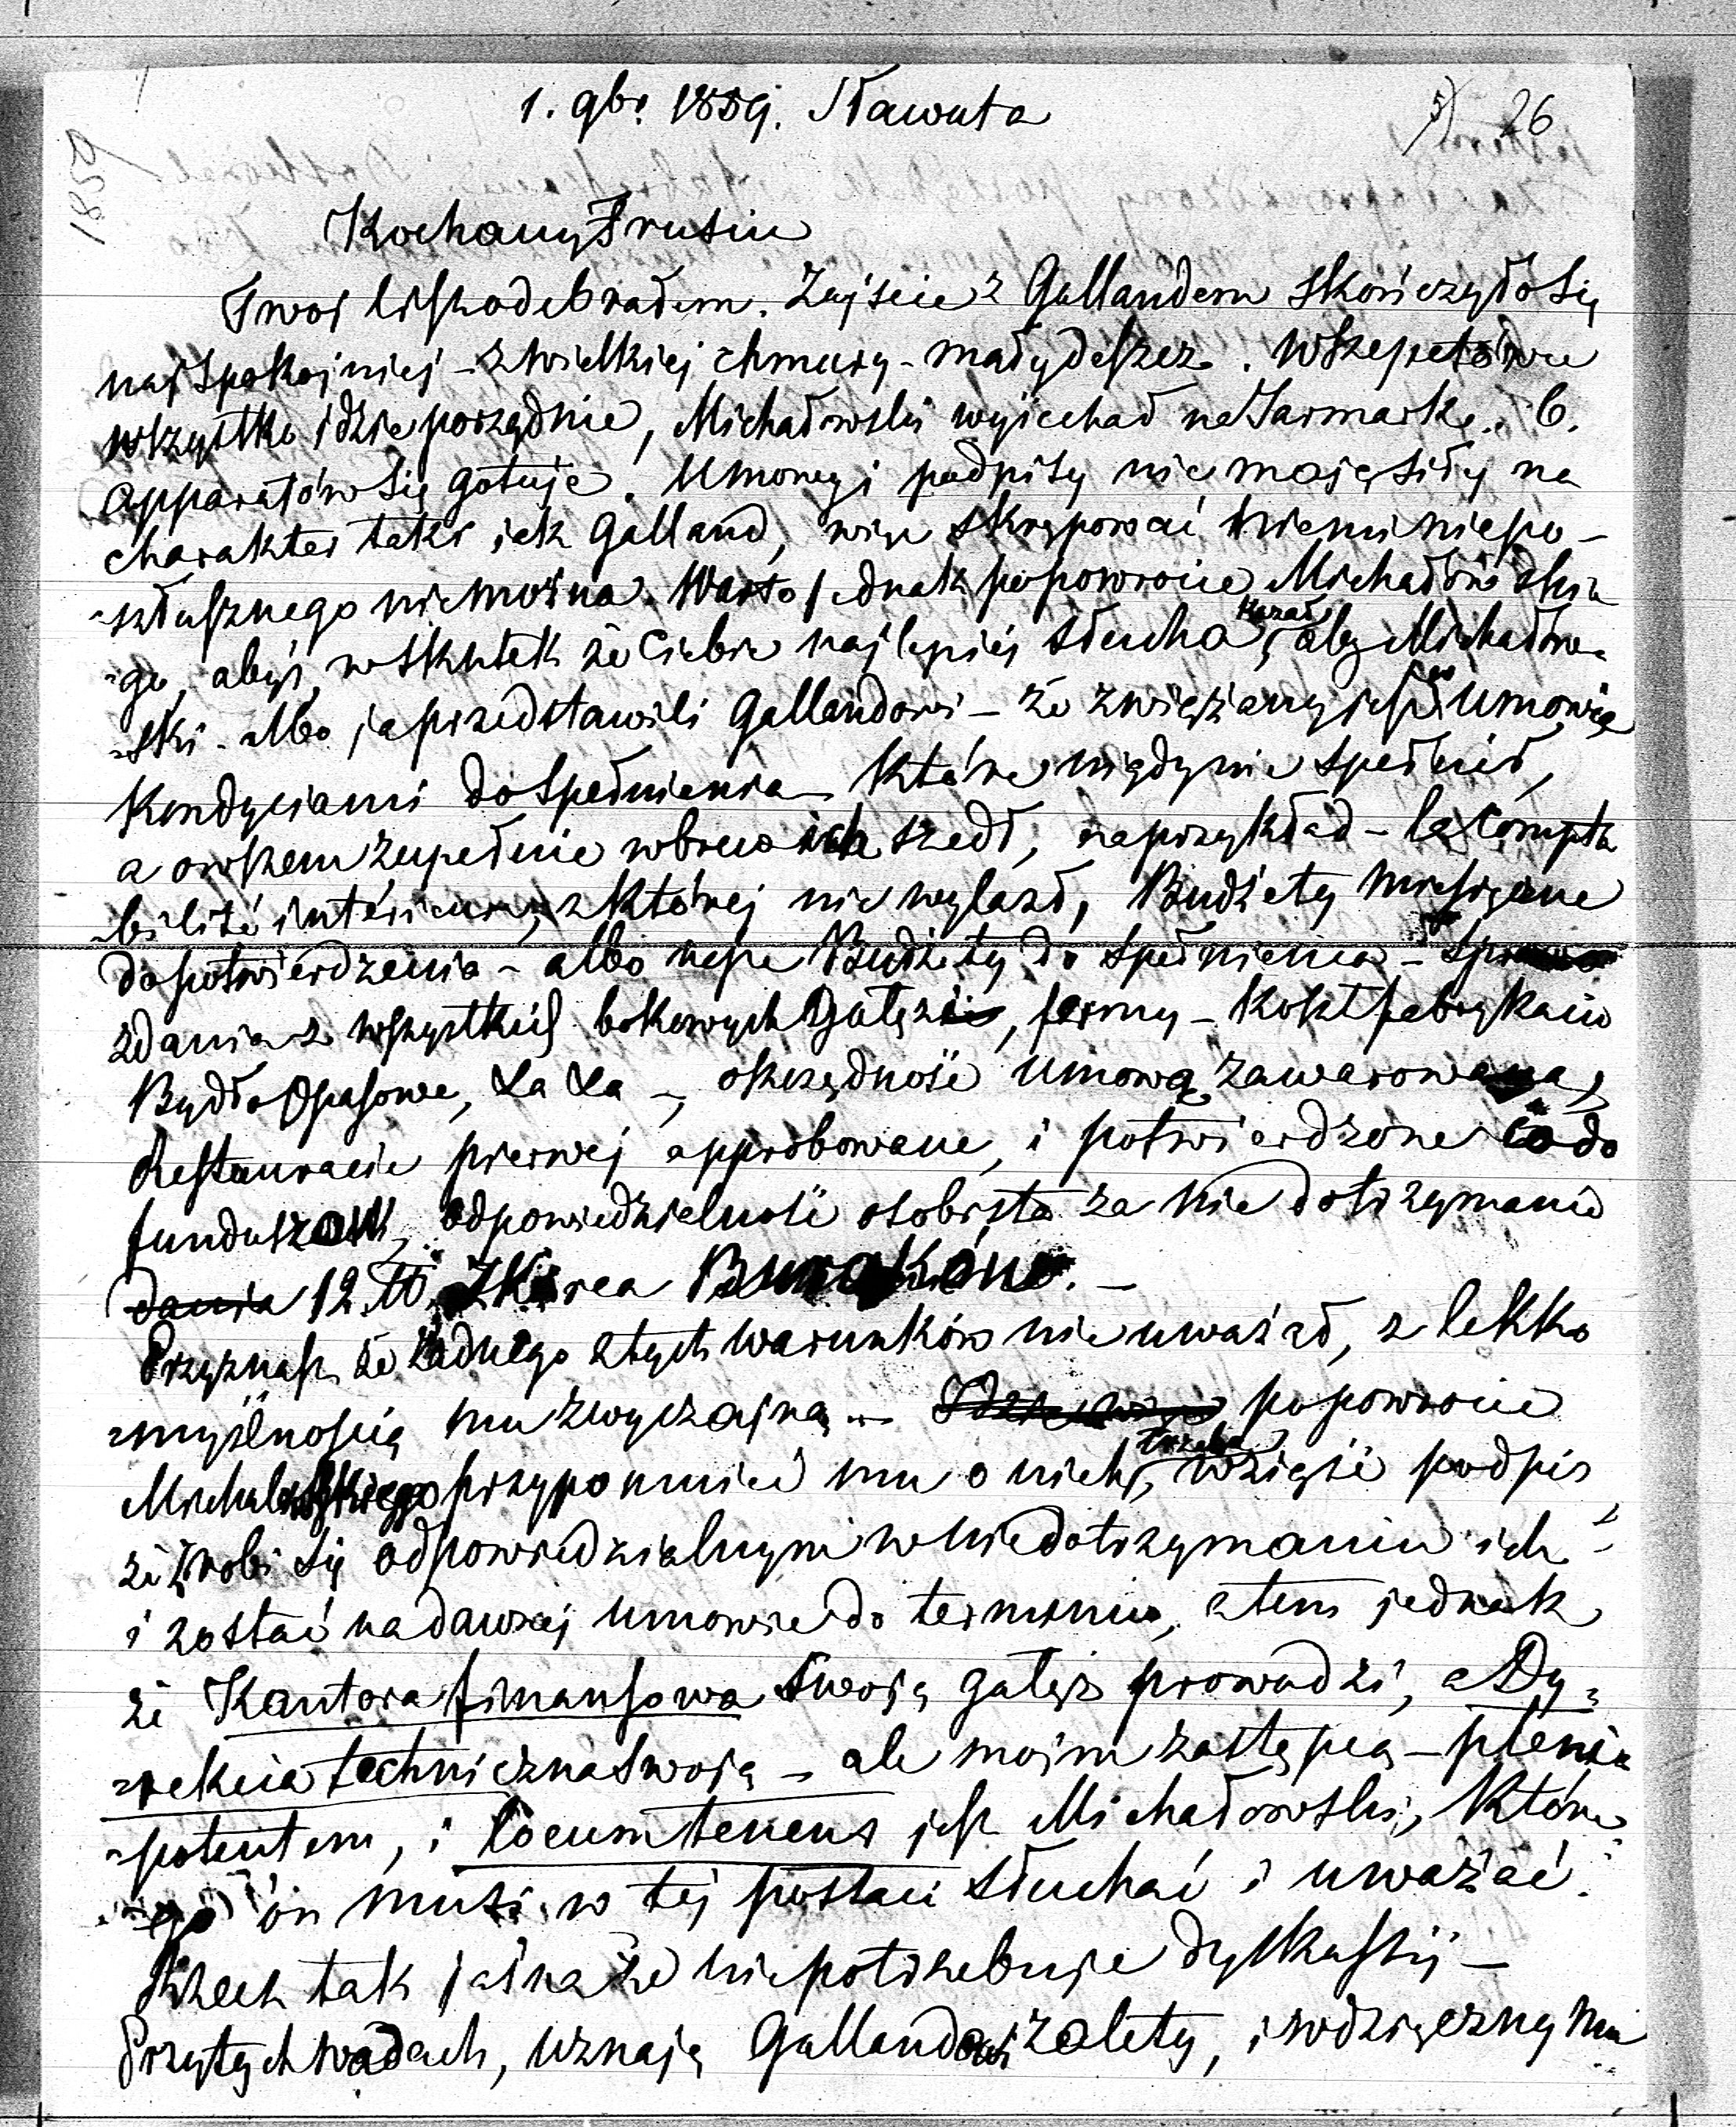 1. 9br. 1859. Sławuta
5) 26
1859
Kochany Frusiu
Twoj list odebrałem. Zajscie z Gallandem skończyło się
najspokojniej – z wielkiej chmury – mały deszcz. W Szepetówce
wszystko idzie porządnie, Michałowski wyiechał na Jarmarkę. 6.
apparatów się gotuje. Umowy i podpisy nie maję siły na
charakter taki jak Galland, więc skrępować niemi niepo-
-słusznego niemożna. Warto jednak po powrocie Michałowskie-
-go, abyś, w skutek że Ciebie najlepiej słucha, kazał, aby Michałow-
-ski – albo ja przedstawili Gallandowi – że związany jest umową
Kondyciami do spełnienia – które nigdy nie spełnił,
a owszem zupełnie wbrew ich szedł, naprzykład – la compta
-bilité intérieure, z której nie wylazł, Budżety miesięczne
do potwierdzenia – albo Budżety do spełnienia –
zdania z wszystkich bokowych Gałęzi, fermy – koszt fabrykaciu
Bydło Opasowe, &a &a –, oszczędność umową zawarowana,
Restauracie pierwej approbowane, i potwierdzone co do
funduszow, odpowiedzialność osobista za nie dotrzymanie
dania 12 Korca Buraków. –
Przyznasz że żadnego z tych warunków nie uważał, z lekko
-myślnością mu zwyczajną – po powrocie
Michałowskiego przypomnieć mu o nich, trzeba, wziąść podpis
że zrobi się odpowiedzialnym w niedotrzymaniu ich –
i zostać na dawnej umowie do terminu, z tem jednak
że Kantora finansowa swoją gałęź prowadzi, a Dy-
-rekcia techniczna swoją – ale moim zastępcą – pleni-
-potentem, i locum tenens jest Michałowski, które-
-go on musi w tej postaci słuchać i uważać.
Rzecz tak jasna że niepotrzebuje dyskussij –
Przy tych wadach, uznaję Gallandowi zalety, i wdzięczny mu